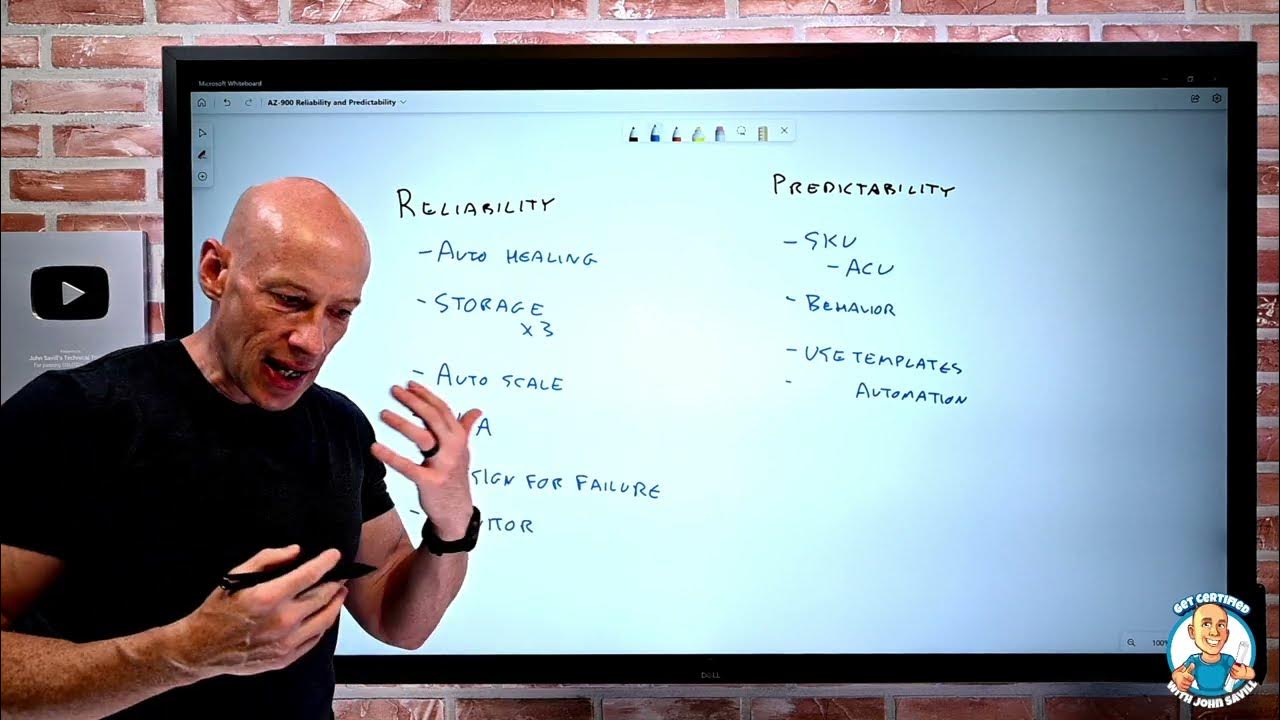 Microsoft Whiteboard
AZ-900 Reliability and Predictability
RELIABILITY
- AUTO HEALING
- STORAGE
x3
- AUTO SCALE
A
SIGN FOR FAILURE
- ITOR
PREDICTABILITY
- SKU
- ACU
- BEHAVIOR
- USE TEMPLATES
- AUTOMATION
John Savill's Technical
DELL
100%
GET CERTIFIED
WITH JOHN SAVILL